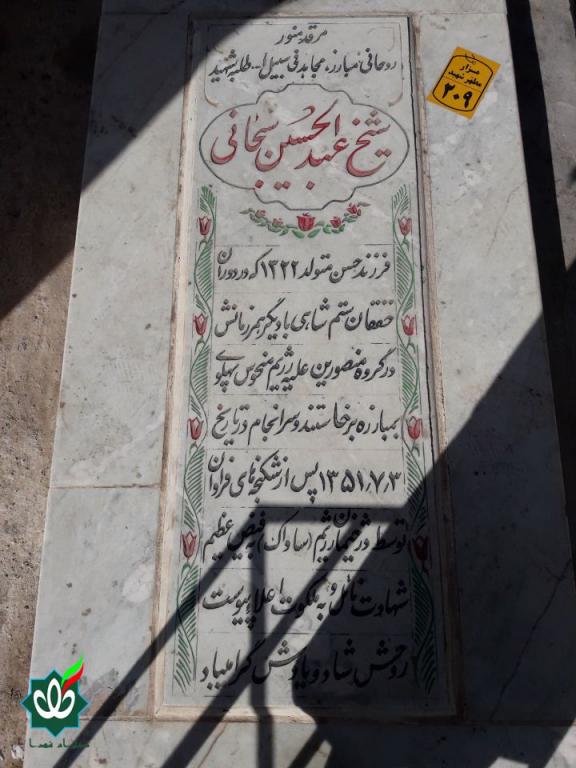 مرقد منور
روحانی مبارز، مجاهد فی سبیل الله طلبه شهید
شیخ عبدالحسین سبحانی
فرزند حسن متولد ۱۳۲۲ که در دوران
خفقان ستم شاهی با دیگر همرزمانش
در گروه منصورین علیه رژیم منحوس پهلوی
بمبارزه برخاستند و سرانجام در تاریخ
۱۳۵۱٫۷٫۳ پس از شکنجه های فراوان
توسط دژخیمان رژیم (ساواک) به فیض عظیم
شهادت نائل و به ملکوت اعلا پیوست
روحش شاد و یادش گرامیباد
مزار
مطهر شهید
۲۰۹